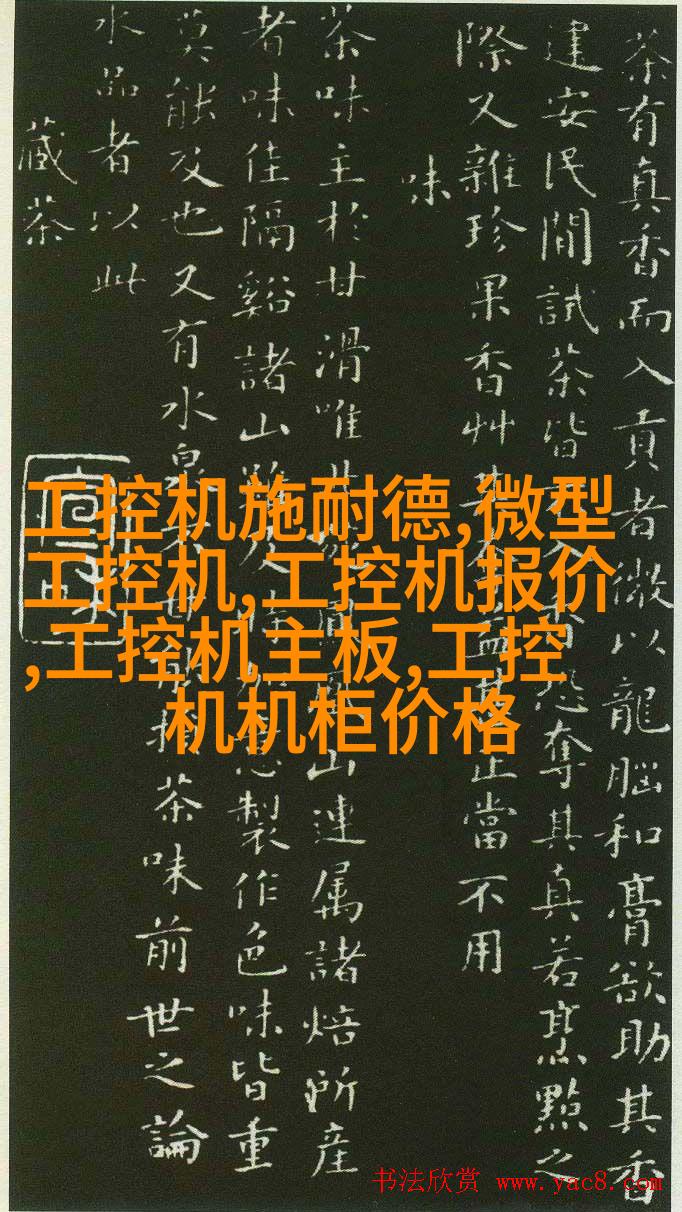 茶有真香而入貢者微以龍腦和膏欲助其香
建安民間試茶皆 恐奪其真若烹點之
際又雜珍果香艸 當不用
味
茶味主於甘滑唯 山連属諸焙所産
者味佳隔谿諸山 製作色味皆重
莫能及也又有水泉 茶味前世之論
水品者以此
藏茶
工控机施耐德,微型
工控机,工控机报价
,工控机主板,工控
机机柜价格
书法欣赏 www.yac8.com